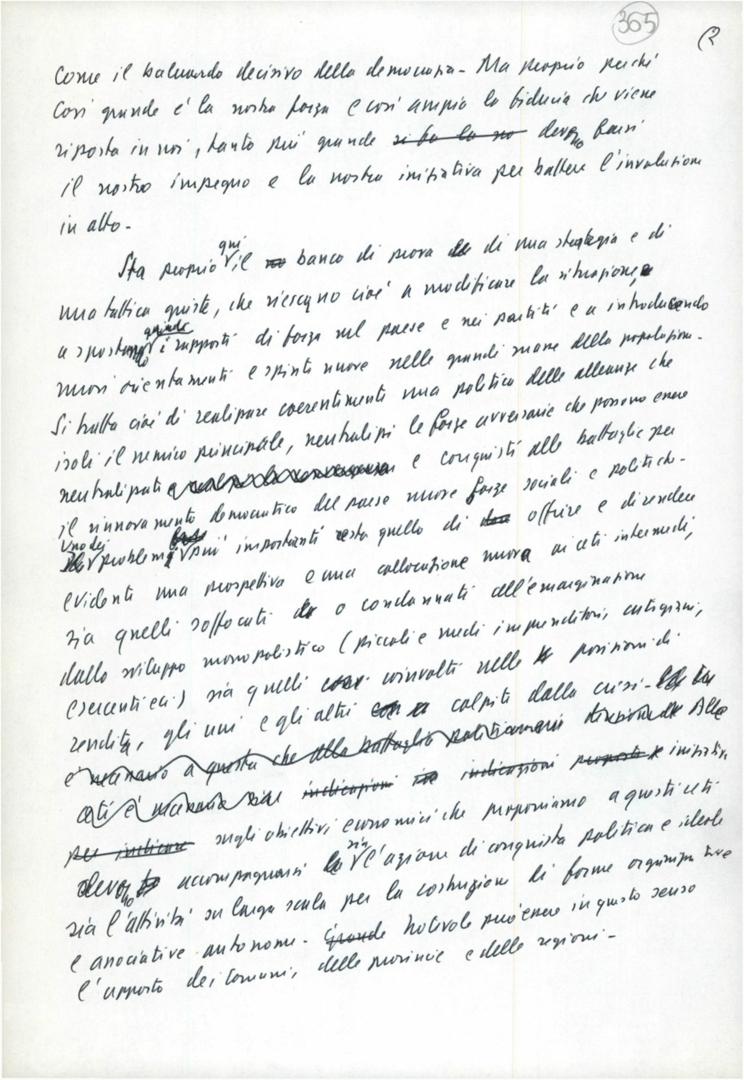 365
come il baluardo decisivo della democrazia - Ma proprio perché
così grande è la nostra forza e così ampia la fiducia che viene
riposta in noi, tanto più grande devono farsi
il nostro impegno e la nostra iniziativa per battere l'involuzione
in atto -
Sta proprio qui il banco di prova di una strategia e di
una tattica giuste, che riescano cioè a modificare la situazione,
a spostare quindi i rapporti di forza nel paese e nei partiti e a introducendo
nuovi orientamenti e spinte nuove nelle grandi masse della popolazione.
Si tratta cioè di realizzare coerentemente una politica delle alleanze che
isoli il nemico principale, neutralizzi le forze avversarie che possono essere
neutralizzate e conquisti alla battaglia per
il rinnovamento democratico del paese nuove forze sociali e politiche -
Uno dei problemi più importanti resta quello di offrire e di rendere
evidenti una prospettiva e una collocazione nuova ai ceti intermedi,
sia quelli soffocati o condannati all'emarginazione
dallo sviluppo monopolistico (piccoli e medi imprenditori, artigiani,
esercenti ecc.) sia quelli coinvolti nelle posizioni di
rendita, gli uni e gli altri colpiti dalla crisi -
Alle
indicazioni iniziativa
sugli obiettivi economici che proponiamo a questi ceti
devono accompagnarsi sia l'azione di conquista politica e ideale
sia l'attività su larga scala per la costruzione di forme organizzative
e associative autonome - Notevole può essere in questo senso
l'apporto dei Comuni, delle provincie e delle regioni -